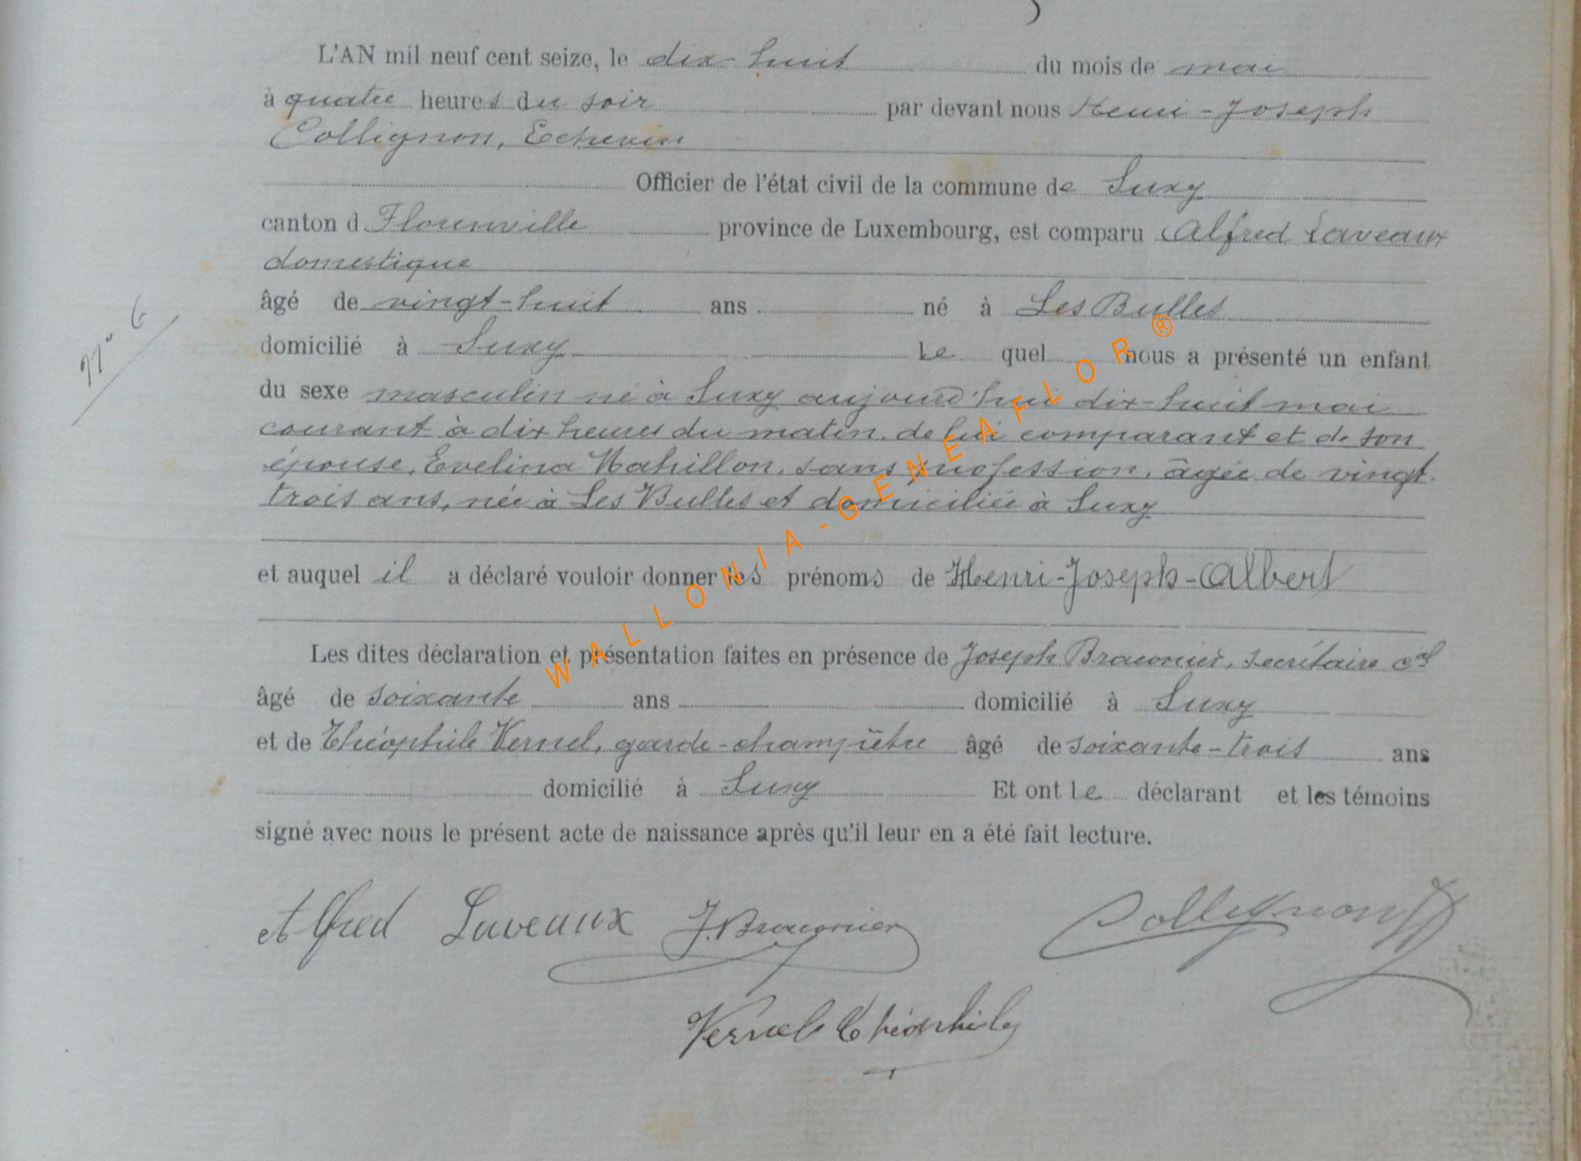 L'AN mil neuf cent seize, le dix-huit du mois de mai
à quatre heures du soir par devant nous Henri-Joseph
Collignon, Echevin
Officier de l'état civil de la commune de Suxy
canton d Florenville province de Luxembourg, est comparu Alfred Laveaux
domestique
âgé de vingt-huit ans né à Les Bulles
domicilié à Suxy Le quel nous a présenté un enfant
du sexe masculin né à Suxy aujourd'hui dix-huit mai
courant à dix heures du matin, de lui comparant et de son
épouse, Evelina Mahillon, sans profession, âgée de vingt-
trois ans, née à Les Bulles et domiciliée à Suxy
et auquel il a déclaré vouloir donner les prénoms de Henri-Joseph-Albert
Les dites déclaration et présentation faites en présence de Joseph Braconnier, secrétaire cal
âgé de soixante ans domicilié à Suxy
et de Théophile Vernel, garde-champêtre âgé de soixante-trois ans
domicilié à Suxy Et ont le déclarant et les témoins
signé avec nous le présent acte de naissance après qu'il leur en a été fait lecture.
Alfred Laveaux J. Braconnier Collignon
Vernel Théophile
N° 6
WALLONIA-GENEAFLOR®